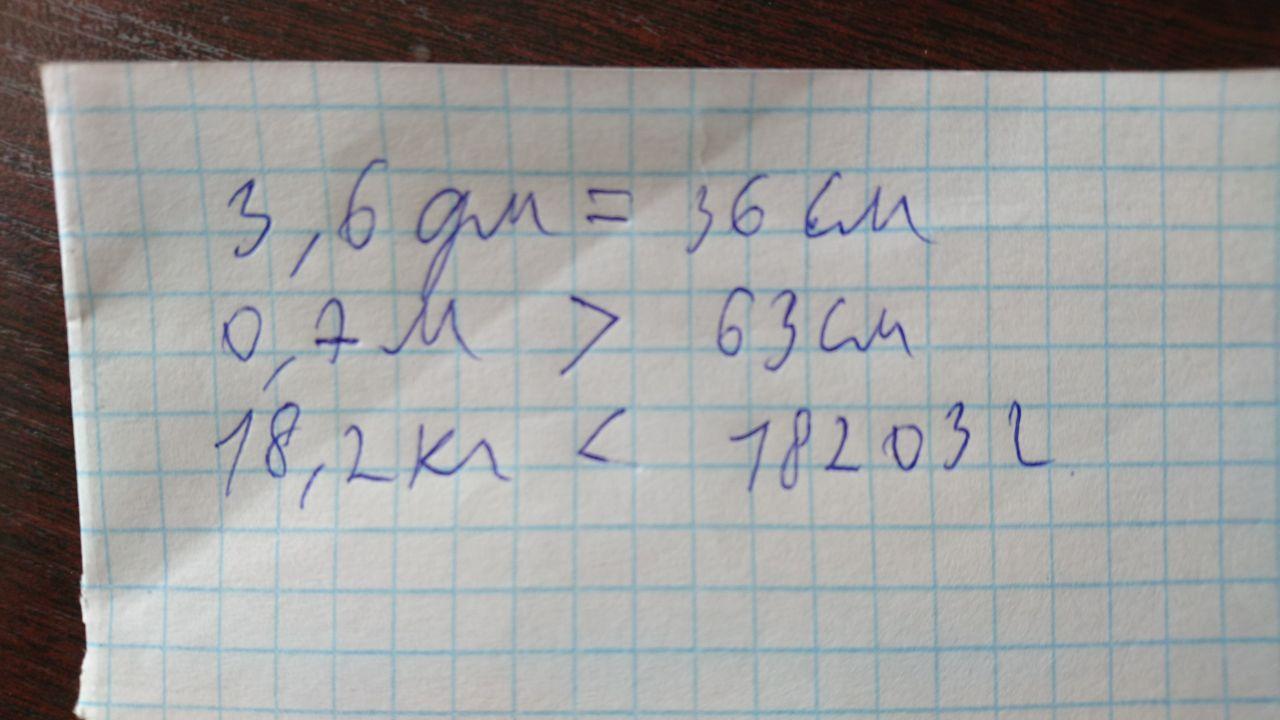 3,6 дм = 36 см
0,7 м > 63 см
18,2 кг < 18203 г